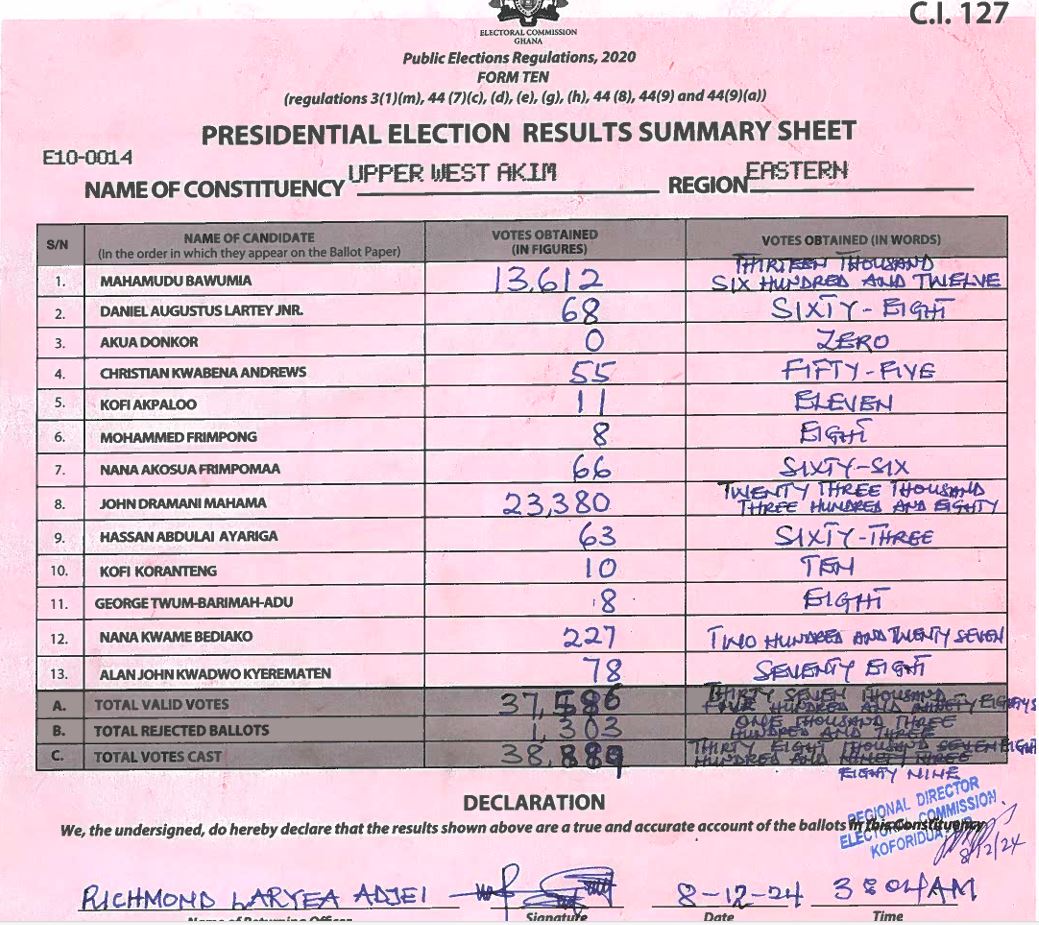 C.I. 127
ELECTORAL COMMISSION
GHANA
Public Elections Regulations, 2020
FORM TEN
(regulations 3(1)(m), 44 (7)(c), (d), (e), (g), (h), 44 (8), 44(9) and 44(9)(a))
PRESIDENTIAL ELECTION RESULTS SUMMARY SHEET
E10-0014
NAME OF CONSTITUENCY UPPER WEST AKIM REGION EASTERN
S/N NAME OF CANDIDATE (In the order in which they appear on the Ballot Paper) VOTES OBTAINED (IN FIGURES) VOTES OBTAINED (IN WORDS)
1. MAHAMUDU BAWUMIA 13,612 THIRTEEN THOUSAND SIX HUNDRED AND TWELVE
2. DANIEL AUGUSTUS LARTEY JNR. 68 SIXTY-EIGHT
3. AKUA DONKOR 0 ZERO
4. CHRISTIAN KWABENA ANDREWS 55 FIFTY-FIVE
5. KOFI AKPALOO 11 ELEVEN
6. MOHAMMED FRIMPONG 8 EIGHT
7. NANA AKOSUA FRIMPOMAA 66 SIXTY-SIX
8. JOHN DRAMANI MAHAMA 23,380 TWENTY THREE THOUSAND THREE HUNDRED AND EIGHTY
9. HASSAN ABDULAI AYARIGA 63 SIXTY-THREE
10. KOFI KORANTENG 10 TEN
11. GEORGE TWUM-BARIMAH-ADU 8 EIGHT
12. NANA KWAME BEDIAKO 227 TWO HUNDRED AND TWENTY SEVEN
13. ALAN JOHN KWADWO KYEREMATEN 78 SEVENTY EIGHT
A. TOTAL VALID VOTES THIRTY SEVEN THOUSAND HUNDRED AND
B. TOTAL REJECTED BALLOTS 1,303 ONE THOUSAND THREE HUNDRED AND THREE
C. TOTAL VOTES CAST THIRTY EIGHT THOUSAND EIGHT HUNDRED AND
EIGHTY NINE
DECLARATION
We, the undersigned, do hereby declare that the results shown above are a true and accurate account of the ballots in this Constituency
REGIONAL DIRECTOR
ELECTORAL COMMISSION
KOFORIDUA
8/12/24
RICHMOND LARYEA ADJEI 8-12-24 3:04AM
Name of Returning Officer Signature Date Time